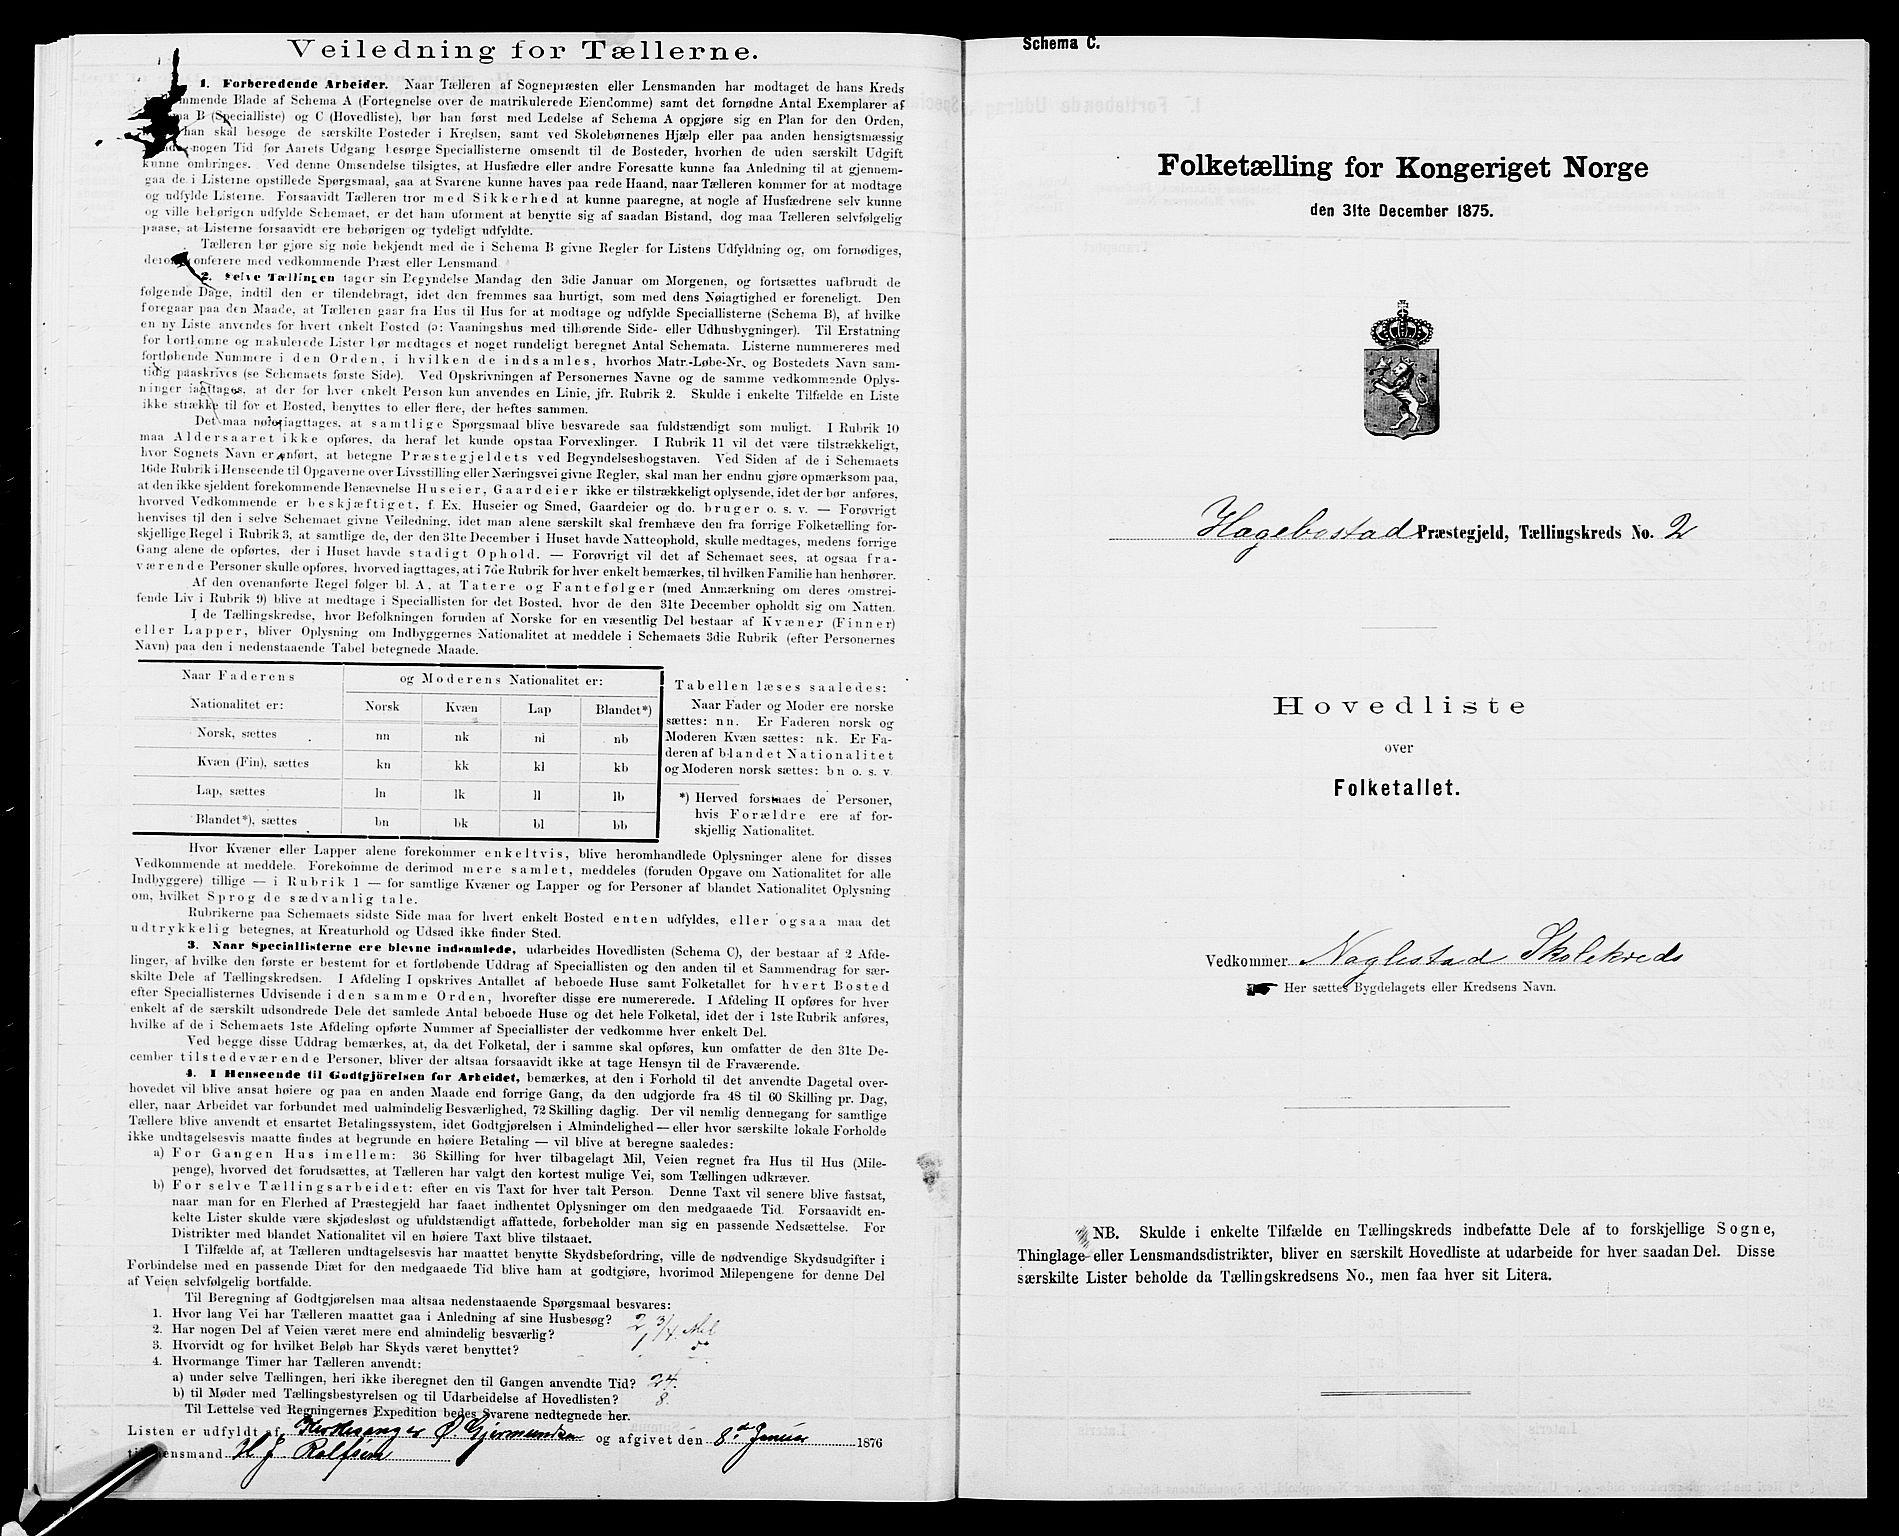 Veiledning for Tællerne.
1. Forberedende Arbeider. Naar Tælleren af Sognepræsten eller Lensmanden har modtaget de hans Kreds
mmende Blade af Schema A (Fortegnelse over de matrikulerede Eiendomme) samt det fornødne Antal Exemplarer af
ma B (Specialliste) og C (Hovedliste), bør han først med Ledelse af Schema A opgjøre sig en Plan for den Orden,
han skal besøge de særskilte Posteder i Kredsen, samt ved Skolebørnenes Hjælp eller paa anden hensigtsmæssig
nogen Tid før Aarets Udgang besørge Speciallisterne omsendt til de Bosteder, hvorhen de uden særskilt Udgift
kunne ombringes. Ved denne Omsendelse tilsigtes, at Husfædre eller andre Foresatte kunne faa Anledning til at gjennem-
gaa de i Listerne opstillede Spørgsmaal, saa at Svarene kunne haves paa rede Haand, naar Tælleren kommer for at modtage
og udfylde Listerne. Forsaavidt Tælleren tror med Sikkerhed at kunne paaregne, at nogle af Husfædrene selv kunne
og ville behørigen udfylde Schemaet, er det ham uforment at benytte sig af saadan Bistand, dog maa Tælleren selvfølgelig
paase, at Listerne forsaavidt ere behørigen og tydeligt udfyldte.
Tælleren bør gjøre sig nøie bekjendt med de i Schema B givne Regler for Listens Udfyldning og, om fornødiges,
derom konferere med vedkommende Præst eller Lensmand
2. Selve Tællingen tager sin Begyndelse Mandag den 3die Januar om Morgenen, og fortsættes uafbrudt de
følgende Dage, indtil den er tilendebragt, idet den fremmes saa hurtigt, som med dens Nøiagtighed er foreneligt. Den
foregaar paa den Maade, at Tælleren gaar fra Hus til Hus for at modtage og udfylde Speciallisterne (Schema B), af hvilke
en ny Liste anvendes for hvert enkelt Bosted (ɔ: Vaaningshus med tilhørende Side- eller Udhusbygninger). Til Erstatning
for bortkomne og makulerede Lister bør medtages et noget rundeligt beregnet Antal Schemata. Listerne nummereres med
fortløbende Nummere i den Orden, i hvilken de indsamles, hvorhos Matr.-Løbe-Nr. og Bostedets Navn sam-
tidig paaskrives (se Schemaets første Side). Ved Opskrivningen af Personernes Navne og de samme vedkommende Oplys-
ninger iagttages, at der for hver enkelt Person kun anvendes en Linie, jfr. Rubrik 2. Skulde i enkelte Tilfælde en Liste
ikke strække til for et Bosted, benyttes to eller flere, der heftes sammen.
Det maa nøie iagttages, at samtlige Spørgsmaal blive besvarede saa fuldstændigt som muligt. I Rubrik 10
maa Aldersaaret ikke opføres, da heraf let kunde opstaa Forvexlinger. I Rubrik 11 vil det være tilstrækkeligt,
hvor Sognets Navn er anført, at betegne Præstegjeldets ved Begyndelsesbogstaven. Ved Siden af de i Schemaets
16de Rubrik i Henseende til Opgaverne over Livsstilling eller Næringsvei givne Regler, skal man her endnu gjøre opmærksom paa,
at den ikke sjeldent forekommende Benævnelse Huseier, Gaardeier ikke er tilstrækkeligt oplysende, idet der bør anføres,
hvorved Vedkommende er beskjæftiget, f. Ex. Huseier og Smed, Gaardeier og do. bruger o. s. v. — Forøvrigt
henvises til den i selve Schemaet givne Veiledning, idet man alene særskilt skal fremhæve den fra forrige Folketælling for-
skjellige Regel i Rubrik 3, at samtlige de, der den 31te December i Huset havde Natteophold, skulle medtages, medens forrige
Gang alene de opførtes, der i Huset havde stadigt Ophold. — Forøvrigt vil det af Schemaet sees, at ogsaa fra-
værende Personer skulle opføres, hvorved iagttages, at i 7de Rubrik for hver enkelt bemærkes, til hvilken Familie han henhører.
Af den ovenanførte Regel følger bl. A. at Tatere og Fantefølger (med Anmærkning om deres omstrei-
fende Liv i Rubrik 9) blive at medtage i Speciallisten for det Bosted, hvor de den 31te December opholdt sig om Natten.
I de Tællingskredse, hvor Befolkningen foruden af Norske for en væsentlig Del bestaar af Kvæner (Finner)
eller Lapper, bliver Oplysning om Indbyggernes Nationalitet at meddele i Schemaets 3die Rubrik (efter Personernes
Navn) paa den i nedenstaaende Tabel betegnede Maade.
Naar Faderens og Moderens Nationalitet er:
Nationalitet er: Norsk Kvæn Lap Blandet*)
Norsk, sættes nn nk nl nb
Kvæn (Fin), sættes kn kk kl kb
Lap, sættes ln lk ll lb
Blandet*), sættes bn bk bl bb
Tabellen læses saaledes:
Naar Fader og Moder ere norske
sættes: nn. Er Faderen norsk og
Moderen Kvæn sættes: nk. Er Fa-
deren af blandet Nationalitet
og Moderen norsk sættes: bn o. s. v.
*) Herved forstaaes de Personer,
hvis Forældre ere af for-
skjellig Nationalitet.
Hvor Kvæner eller Lapper alene forekommer enkeltvis, blive heromhandlede Oplysninger alene for disses
Vedkommende at meddele. Forekomme de derimod mere samlet, meddeles (foruden Opgave om Nationalitet for alle
Indbyggere) tillige — i Rubrik 1 — for samtlige Kvæner og Lapper og for Personer af blandet Nationalitet Oplysning
om, hvilket Sprog de sædvanlig tale.
Rubrikerne paa Schemaets sidste Side maa for hvert enkelt Bosted enten udfyldes, eller ogsaa maa det
udtrykkelig betegnes, at Kreaturhold og Udsæd ikke finder Sted.
3. Naar Speciallisterne ere blevne indsamlede, udarbeides Hovedlisten (Schema C), der bestaar af 2 Afde-
linger, af hvilke den første er bestemt for et fortløbende Uddrag af Speciallisten og den anden til et Sammendrag for sær-
skilte Dele af Tællingskredsen. I Afdeling I opskrives Antallet af beboede Huse samt Folketallet for hvert Bosted
efter Speciallisternes Udvisende i den samme Orden, hvorefter disse ere numererede. I Afdeling II opføres for hver
enkelt af de særskilt udsondrede Dele det samlede Antal beboede Huse og det hele Folketal, idet der i 1ste Rubrik anføres,
hvilke af de i Schemaets 1ste Afdeling opførte Nummer af Speciallister der vedkomme hver enkelt Del.
Ved begge disse Uddrag bemærkes, at, da det Folketal, der i samme skal opføres, kun omfatter de den 31te De-
cember tilstedeværende Personer, bliver der altsaa forsaavidt ikke at tage Hensyn til de Fraværende.
4. I Henseende til Godtgjörelsen for Arbeidet, bemærkes, at den i Forhold til det anvendte Dagetal over-
hovedet vil blive ansat høiere og paa en anden Maade end forrige Gang, da den udgjorde fra 48 til 60 Skilling pr. Dag,
eller, naar Arbeidet var forbundet med ualmindelig Besværlighed, 72 Skilling daglig. Der vil nemlig dennegang for samtlige
Tællere blive anvendt et ensartet Betalingssystem, idet Godtgjørelsen i Almindelighed — eller hvor særskilte lokale Forholde
ikke undtagelsesvis maatte findes at begrunde en høiere Betaling — vil blive at beregne saaledes:
a) For Gangen Hus imellem: 36 Skilling for hver tilbagelagt Mil, Veien regnet fra Hus til Hus (Mile-
penge), hvorved det forudsættes, at Tælleren har valgt den kortest mulige Vei, som Tællingen udkræver.
b) For selve Tællingsarbeidet: efter en vis Taxt for hver talt Person. Denne Taxt vil senere blive fastsat,
naar man for en Flerhed af Præstegjeld har faaet indhentet Oplysninger om den medgaaede Tid. Forsaavidt en-
kelte Lister skulde være skjødesløst og ufuldstændigt affattede, forbeholder man sig en passende Nedsættelse. For
Distrikter med blandet Nationalitet vil en høiere Taxt blive tilstaaet.
I Tilfælde af, at Tælleren undtagelsesvis har maattet benytte Skydsbefordring, ville de nødvendige Skydsudgifter i
Forbindelse med en passende Diæt for den medgaaede Tid blive ham at godtgjøre, hvorimod Milepengene for denne Del
af Veien selvfølgelig bortfalde.
Til Beregning af Godtgjørelsen maa altsaa nedenstaaende Spørgsmaal besvares:
1. Hvor lang Vei har Tælleren maattet gaa i Anledning af sine Husbesøg? 2 3/4 Mil
2. Har nogen Del af Veien været mere end almindelig besværlig? do
3. Hvorvidt og for hvilket Beløb har Skyds været benyttet?
4. Hvormange Timer har Tælleren anvendt:
a) under selve Tællingen, heri ikke iberegnet den til Gangen anvendte Tid? 24.
b) til Møder med Tællingsbestyrelsen og til Udarbeidelse af Hovedlisten? 8.
Til Lettelse ved Regningernes Expedition bedes Svarene nedtegnede her.
Listen er udfyldt af Kirkesanger Ø Gjermundsen og afgivet den 8de Januar 1876
til Lensmand H J Rolfsen
Schema C.
Folketælling for Kongeriget Norge
den 31te December 1875.
Hagebostad Præstegjeld, Tællingskreds No. 2
Hovedliste
over
Folketallet.
Vedkommer Naglestad Skolekreds
Her sættes Bygdelagets eller Kredsens Navn.
NB. Skulde i enkelte Tilfælde en Tællingskreds indbefatte Dele af to forskjellige Sogne,
Thinglage eller Lensmandsdistrikter, bliver en særskilt Hovedliste at udarbeide for hver saadan Del. Disse
særskilte Lister beholde da Tællingskredsens No., men faa hver sit Litera.